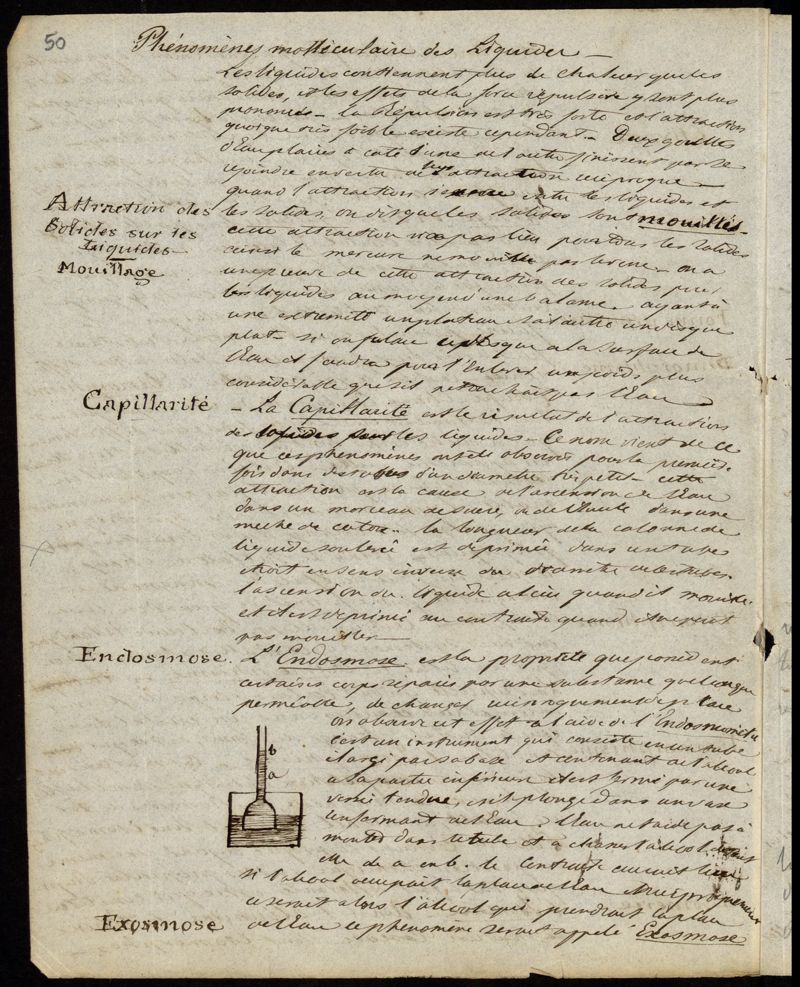 50
Phénomènes molléculaire des Liquides —
Les liquides contiennent plus de chaleur que les
solides, et les effets de la force répulsive y sont plus
prononcés — la Répulsion est très forte et l'attraction
quoique très foible existe cependant — Deux gouttes
d'Eau placées a coté l'une de l'autre finissent par se
rejoindre en vertu de l'attraction réciproque —
quand l'attraction entre les liquides et
les solides, on dit que les solides sont mouillés —
cette attraction n'a pas lieu pour tous les solides
ainsi le mercure ne mouille pas le verre — on a
une preuve de cette attraction des solides pour
les liquides au moyen d'une balance ayant à
une extremité un plateau et à l'autre un disque
plat — si on place ce disque a la surface de
l'Eau il faudra pour l'Enlever un poids plus
considérable que s'il ne touchait pas l'Eau
Attraction des
Solides sur les
Liquides —
Mouillage
Capillarité
— La Capillarité est le résultat de l'attraction
des solides pour les liquides — Ce nom vient de ce
que ces phenomènes ont été observés pour la première
fois dans des tubes d'un diametre très petit — cette
attraction est la cause de l'ascension de l'Eau
dans un morceau de sucre, ou de l'huile dans une
meche de coton — la longueur de la colonne de
liquide soulevé est deprimée dans un tube
étroit en sens inverse du diametre de ces tubes
l'ascension du liquide a lieu quand il mouille
et il est deprimé au contraire quand il ne peut
pas mouiller —
Endosmose.
L'Endosmose est la propriété que possedent
certains corps séparés par une substance quelconque
perméable, de changer réciproquement de place
On observe cet effet a l'aide de l'Endosmomètre
C'est un instrument qui consiste en un tube
élargi par sa base et contenant de l'alcool
a la partie inférieure il est fermé par une
vessie tendue, est plongé dans un vase
renfermant de l'Eau, l'Eau ne tarde pas à
monter dans le tube et a chasser l'alcool
de a en b. le contraire auroit lieu
si l'alcool occupait la place de l'Eau réciproquement
ce serait alors l'alcool qui prendrait la place
de l'Eau ce phénomène serait appelé Exosmose
b
a
Exosmose